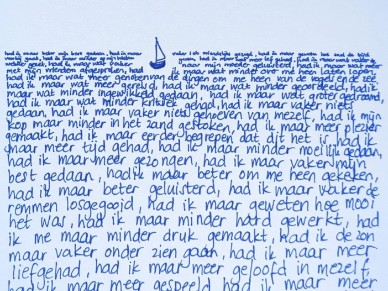 had ik maar beter mijn best gedaan, had ik maar
vaker met mijn
met mijn vrienden afgesproken, had ik maar wat minder over me heen laten lopen,
had ik maar wat meer genoten van de dingen om me heen van de vogels en de zee
had ik maar wat meer gereisd, had ik maar wat minder geoordeeld, had ik
maar wat minder ingewikkeld gedaan, had ik maar wat groter gedroomd,
had ik maar wat minder kritiek gehad, had ik maar vaker niets
gedaan, had ik maar vaker niets gegeven van mezelf, had ik mijn
kop maar minder in het zand gestoken, had ik maar meer plezier
gemaakt, had ik maar eerder begrepen dat dit het is, had ik
maar meer tijd gehad, had ik maar minder moeilijk gedaan,
had ik maar meer gezongen, had ik maar vaker mijn
best gedaan, had ik maar beter om me heen gekeken,
had ik maar beter geluisterd, had ik maar vaker de
remmen losgegooid, had ik maar geweten hoe mooi
het was, had ik maar minder hard gewerkt, had
ik me maar minder druk gemaakt, had ik de zon
maar vaker onder zien gaan, had ik maar meer
liefgehad, had ik maar meer geloofd in mezelf,
had ik maar meer gespeeld, had ik maar